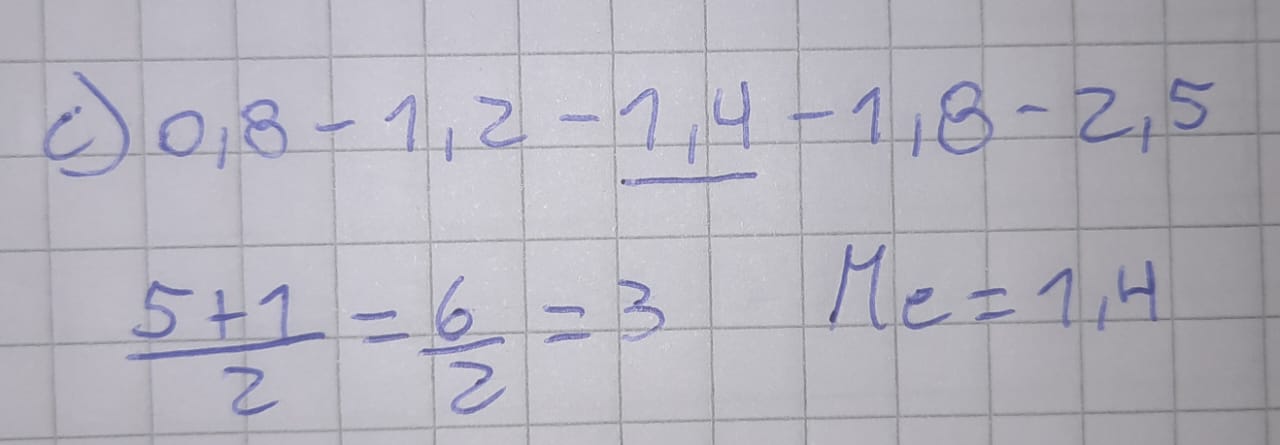 c) 0,8 - 1,2 - 1,4 - 1,8 - 2,5
5+1/2 = 6/2 = 3 Me = 1,4